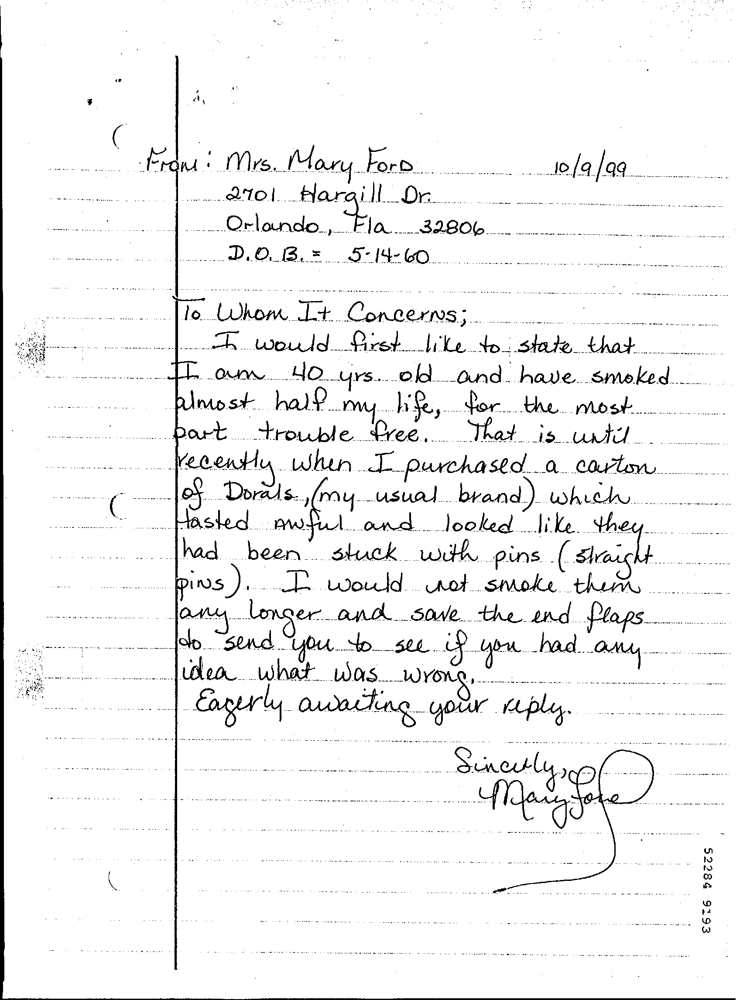 From: Mrs. Mary Ford 10/9/99
2701 Hargill Dr.
Orlando, Fla 32806
D.O.B. = 5-14-60
To Whom It Concerns;
I would first like to state that
I am 40 yrs. old and have smoked
almost half my life, for the most
part trouble free. That is until
recently when I purchased a carton
of Dorals, (my usual brand) which
tasted awful and looked like they
had been stuck with pins (straight
pins). I would not smoke them
any longer and save the end flaps
to send you to see if you had any
idea what was wrong.
Eagerly awaiting your reply.
Sincerly,
Mary Ford
52284 9193